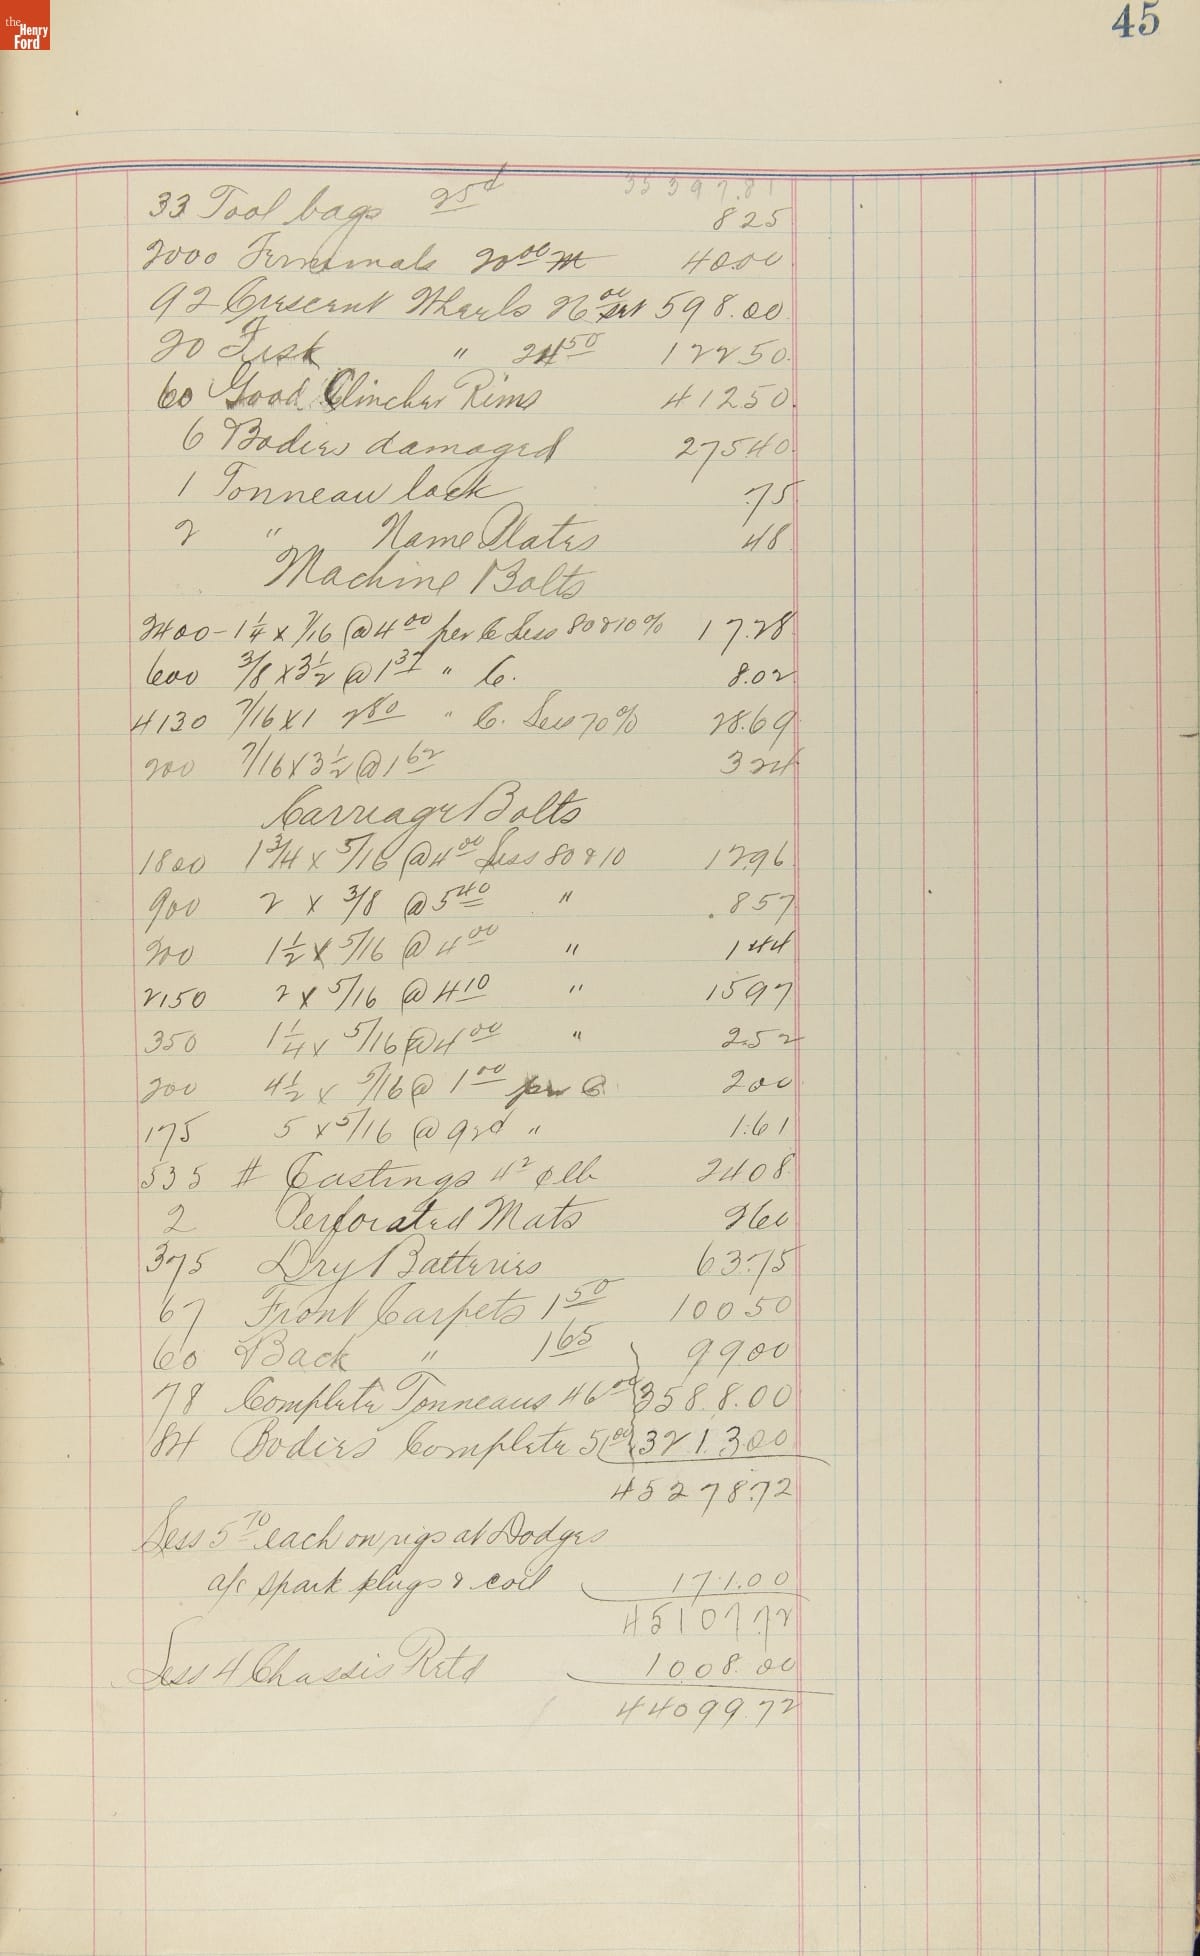 the Henry Ford
45
35397.81
33 Tool bags 25¢ 8 25
2000 Terminals 20 00 M 40.00
92 Crescent Wheels 26 00 set 598.00
20 Fisk " 24 50 122 50
60 Good Clincher Rims 412 50
6 Bodies damaged 275 40
1 Tonneau lock .75
2 " Name Plates 48
Machine Bolts
2400 - 1 1/4 x 7/16 @ 4 00 per C Less 80 & 10% 17.28
600 3/8 x 3 1/2 @ 1 37 " C. 8.02
4130 7/16 x 1 2 80 " C. Less 70% 28.69
200 7/16 x 3 1/2 @ 1 62 3 24
Carriage Bolts
1800 1 3/4 x 5/16 @ 4 00 Less 80 & 10 12 96
900 2 x 3/8 @ 5 40 " 8 57
200 1 1/2 x 5/16 @ 4 00 " 1 44
2150 2 x 5/16 @ 4 10 " 15 97
350 1 1/4 x 5/16 @ 4 00 " 2.52
200 4 1/2 x 5/16 @ 1 00 per C 2 00
175 5 x 5/16 @ 92¢ " 1.61
535 # Castings 4 2 ¢ lb 24 08
2 Perforated Mats 2 60
375 Dry Batteries 63.75
67 Front Carpets 1 50 100 50
60 Back " 1 65 99 00
78 Complete Tonneaus 46 00 3588.00
84 Bodies Complete 51 00 3213 00
45278.72
Less 5 70 each on rigs at Dodges
a/c spark plugs & coil 171.00
45107.72
Less 4 Chassis Retd 1008.00
44099.72